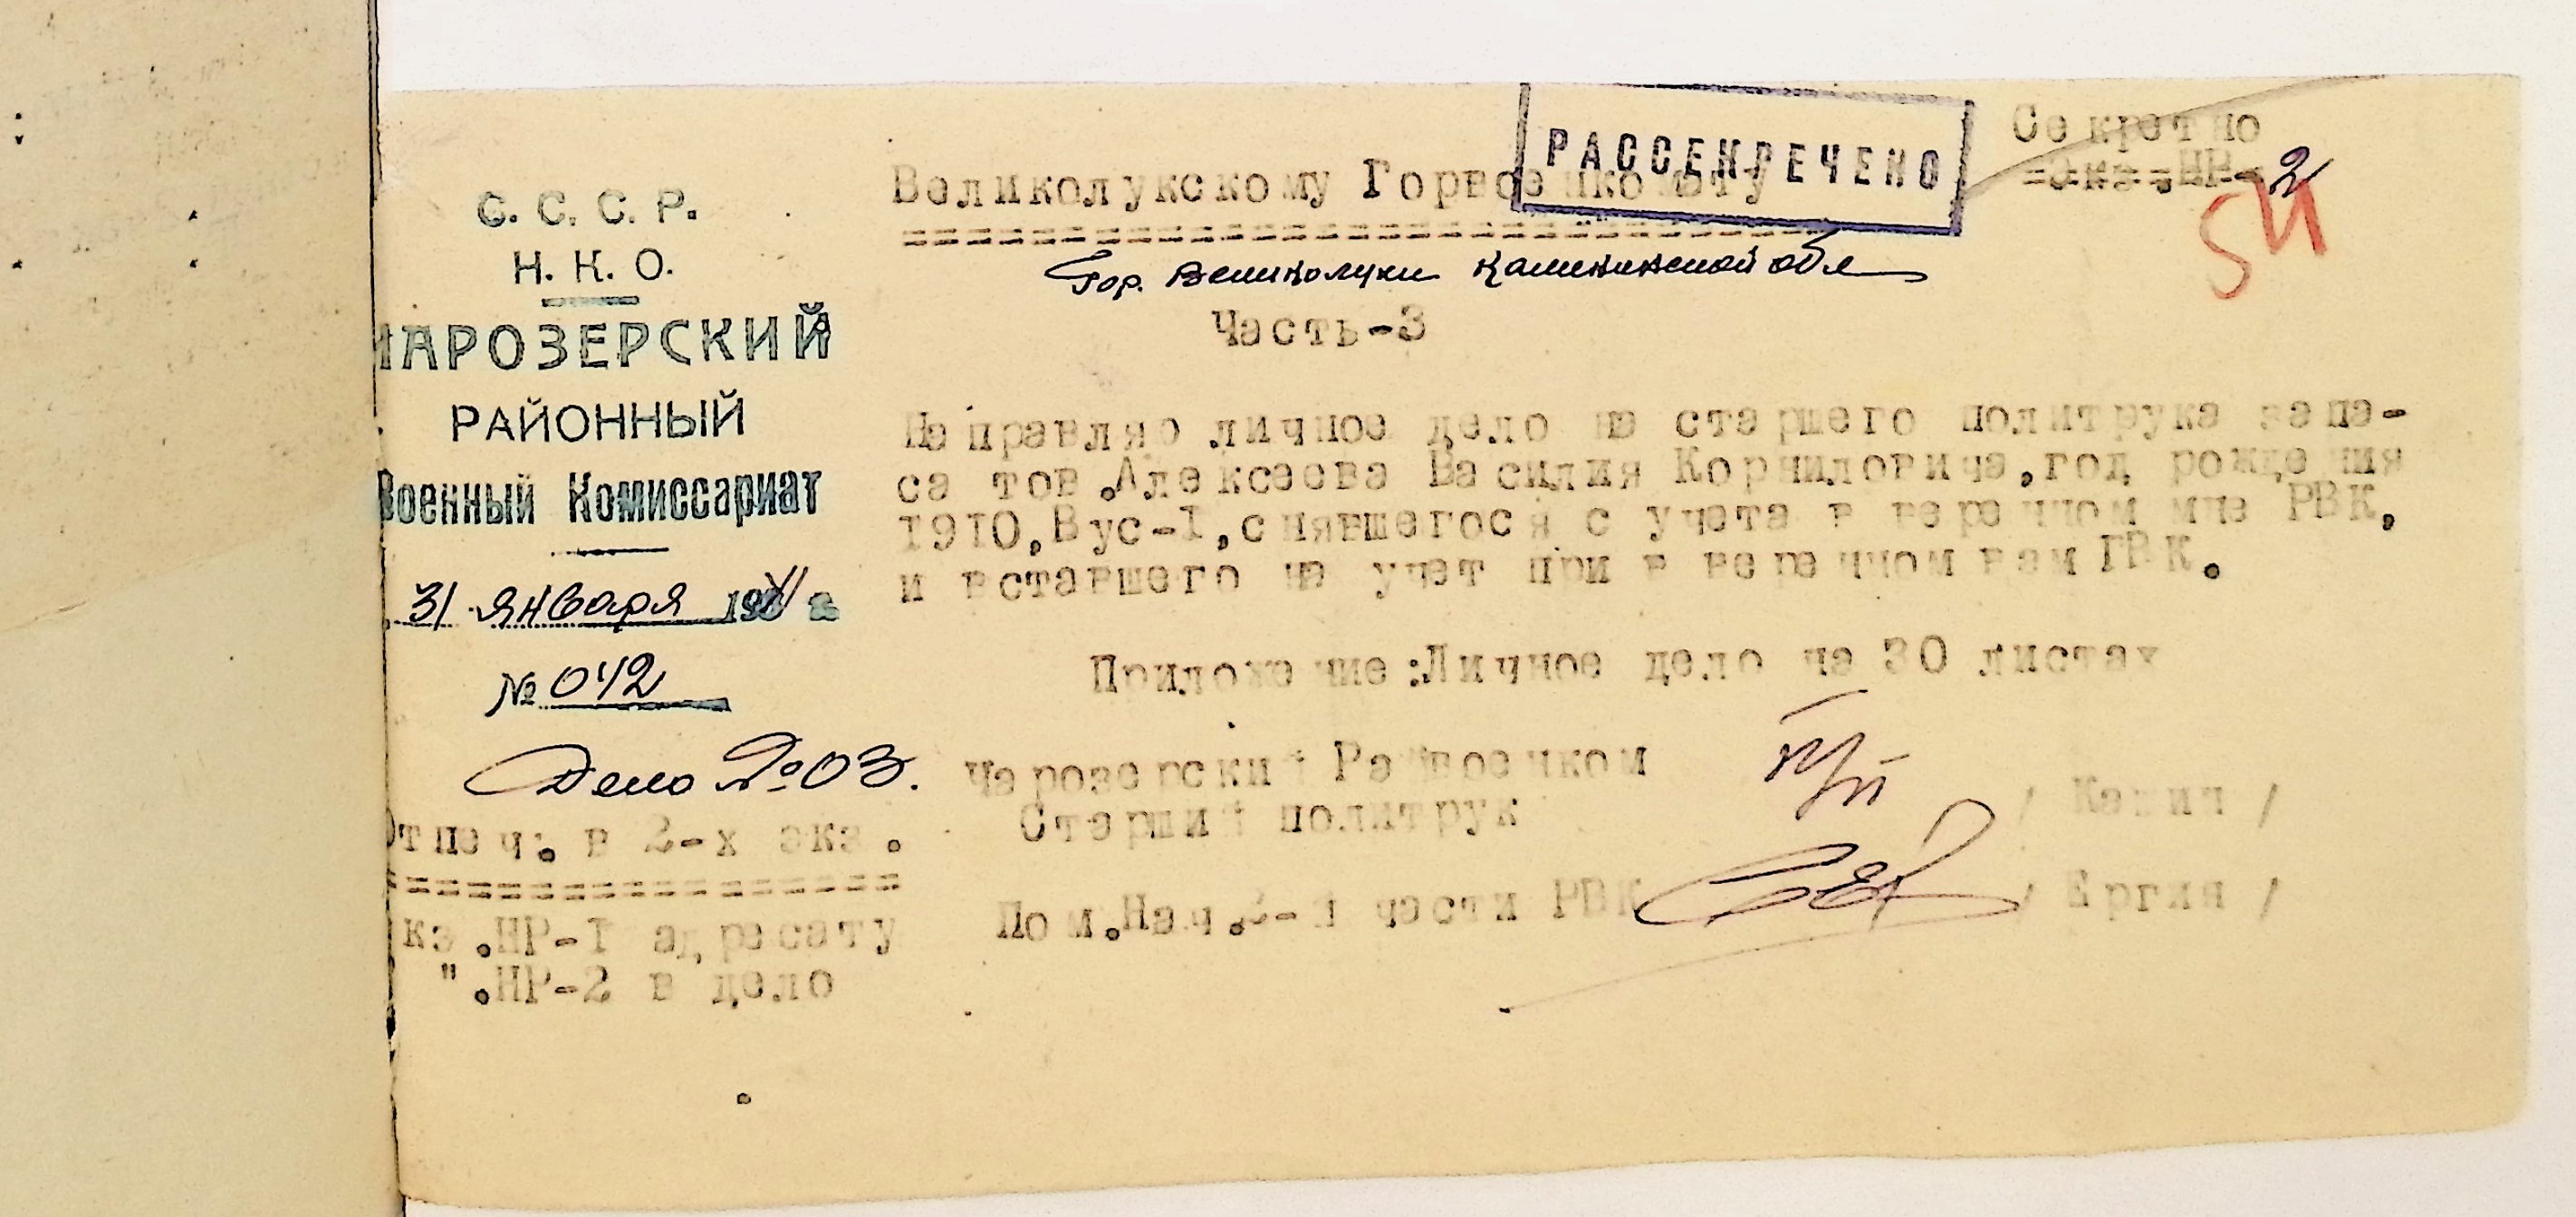 С. С. С. Р.
Н. К. О.
ЧАРОЗЕРСКИЙ
РАЙОННЫЙ
Военный Комиссариат
31 января 1941 г
№ 042
Дело № 03.
Отпеч. в 2-х экз.
=================
кз.НР-1 адресату
".НР-2 в дело
РАССЕКРЕЧЕНО
Секретно
Экз.НР-2
54
Великолукскому Горвоенкомату
============================
Гор. Великолуки Калининской обл
Часть-3
Направляю личное дело на старшего политрука запа-
са тов.Алексеева Василия Корниловича,год рождения
1910,Вус-1,снявшегося с учета в вверенном мне РВК,
и вставшего на учет при вверенном вам ГВК.
Приложение:Личное дело на 30 листах
Чарозерский Райвоенком
Старший политрук / Капич /
Пом.Нач.3-й части РВК / Ергин /